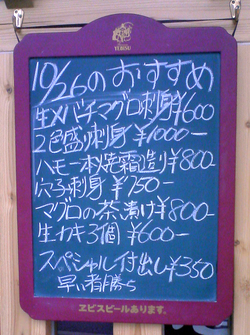 YEBISU
10/26のおすすめ
生メバチマグロ刺身¥600
2色盛り刺身¥1000-
ハモ一本焼霜造り¥800
穴子刺身 ¥750-
マグロの茶漬け¥800-
生カキ3個 ¥600-
スペシャル付出し¥350
早い者勝ち
ヱビスビールあります。